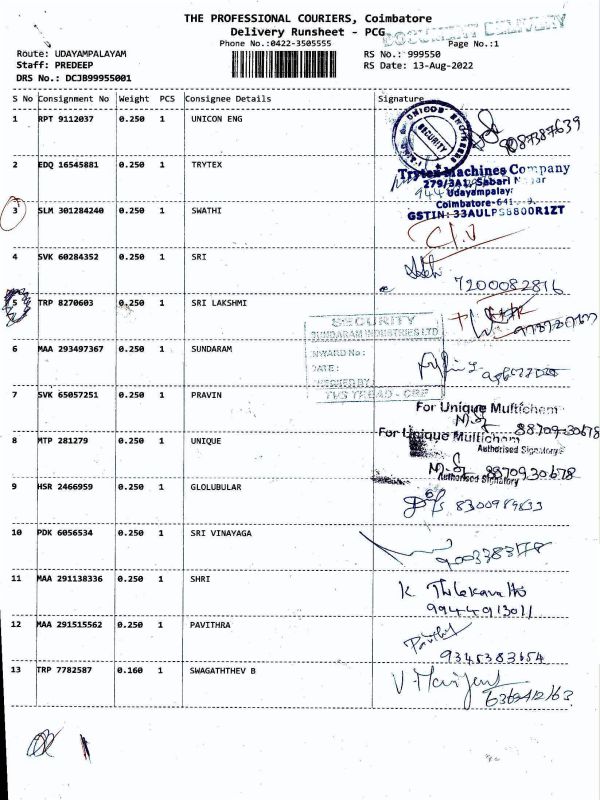 THE PROFESSIONAL COURIERS, Coimbatore
Delivery Runsheet - PCG
DOCUMENT DELIVERY
Phone No.:0422-3505555 Page No.:1
Route: UDAYAMPALAYAM RS No.: 999550
Staff: PREDEEP RS Date: 13-Aug-2022
DRS No.: DCJB99955001
S No Consignment No Weight PCS Consignee Details Signature
1 RPT 9112037 0.250 1 UNICON ENG
SECURITY
9087387639
2 EDQ 16545881 0.250 1 TRYTEX
Trytex Machines Company
279/3A1, Sabari Nagar
Udayampalay
3 SLM 301284240 0.250 1 SWATHI
Coimbatore-641
GSTIN: 33AULPS8800R1ZT
4 SVK 60284352 0.250 1 SRI
7200082816
5 TRP 8270603 0.250 1 SRI LAKSHMI
SECURITY
SUNDARAM INDUSTRIES LTD
INWARD No :
DATE :
6 MAA 293497367 0.250 1 SUNDARAM
TVS TREAD
7 SVK 65057251 0.250 1 PRAVIN
For Unique Multichem
88709-30678
Authorised Signatory
8 MTP 281279 0.250 1 UNIQUE
For Unique Multichem
8870930678
Authorised Signatory
9 HSR 2466959 0.250 1 GLOLUBULAR
10 PDK 6056534 0.250 1 SRI VINAYAGA
11 MAA 291138336 0.250 1 SHRI
9944913011
12 MAA 291515562 0.250 1 PAVITHRA
9345383654
13 TRP 7782587 0.160 1 SWAGATHTHEV B